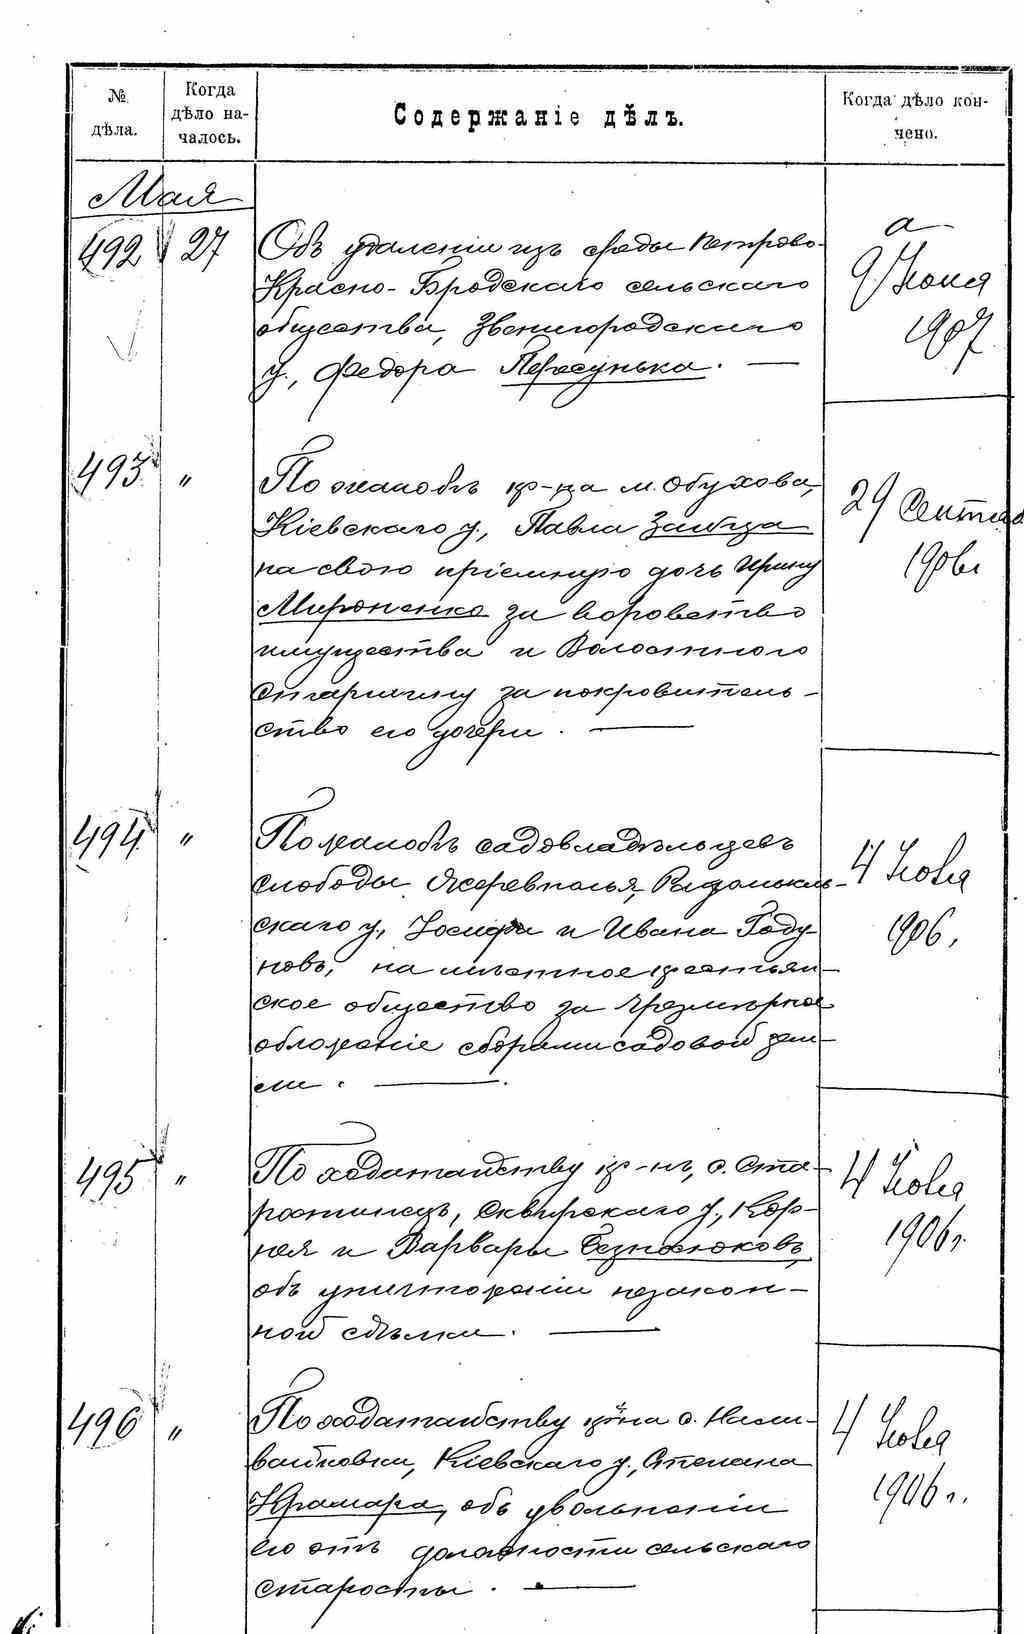 № дѣла.
Когда дѣло на-
чалось.
Содержаніе дѣлъ.
Когда дѣло кон-
чено.
Мая
492 27 Объ удаленіи изъ среды Петрово-
Красно-Бродскаго сельскаго
общества, Звенигородскаго
у., Федора Пересунька. —
9 Іюня
1907
493 " По жалобѣ кр-на м. Обухова,
Кіевскаго у., Павла Заибца
на свою пріемную дочь Ирину
Мироненко за воровство
имущества и Волостного
Старшину за покровитель-
ство его дочери. —
29 Сентяб
1906г
494 " По жалобѣ садовладѣльцевъ
слободы
скаго у., Іосифа и Ивана Году
новъ, на мѣстное крестьян-
ское общество за чрезмѣрное
обложеніе сборами садовой зем-
ли. —
4 Іюля
1906.
495 " По ходатайству кр-нъ, с. Ста-
ростинецъ, Сквирскаго у., Кор-
нея и Варвары Безносюковъ,
объ уничтоженіи незакон-
ной сдѣлки. —
4 Іюля
1906г.
496 " По ходатайству кр-на с. Нали-
вайковки, Кіевскаго у., Степана
Крамара, объ увольненіи
его отъ должности сельскаго
старосты. —
4 Іюля
1906 г.